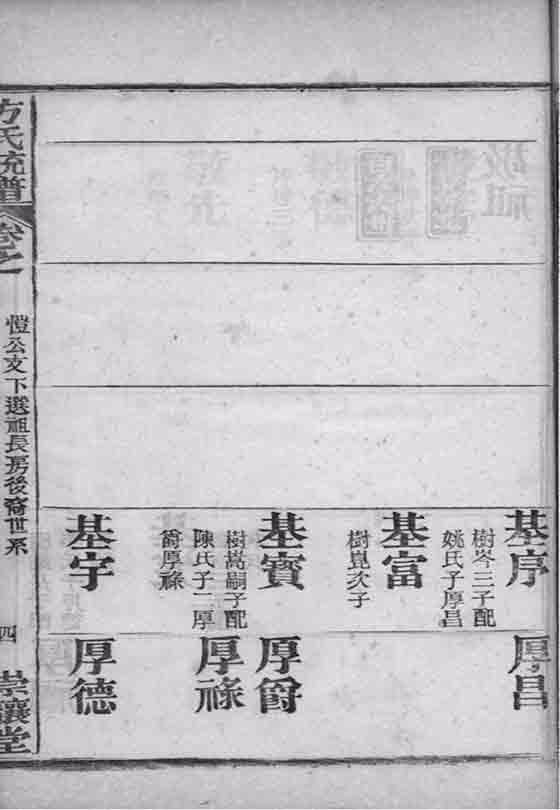 基序
樹岑三子配
姚氏子厚昌
厚昌
基富
樹崑次子
基寶
樹嵩嗣子配
陳氏子二厚
爵厚祿
厚爵
厚祿
基宇
厚德
方氏統譜
卷之
愷公支下選祖長房後裔世系
四
堂